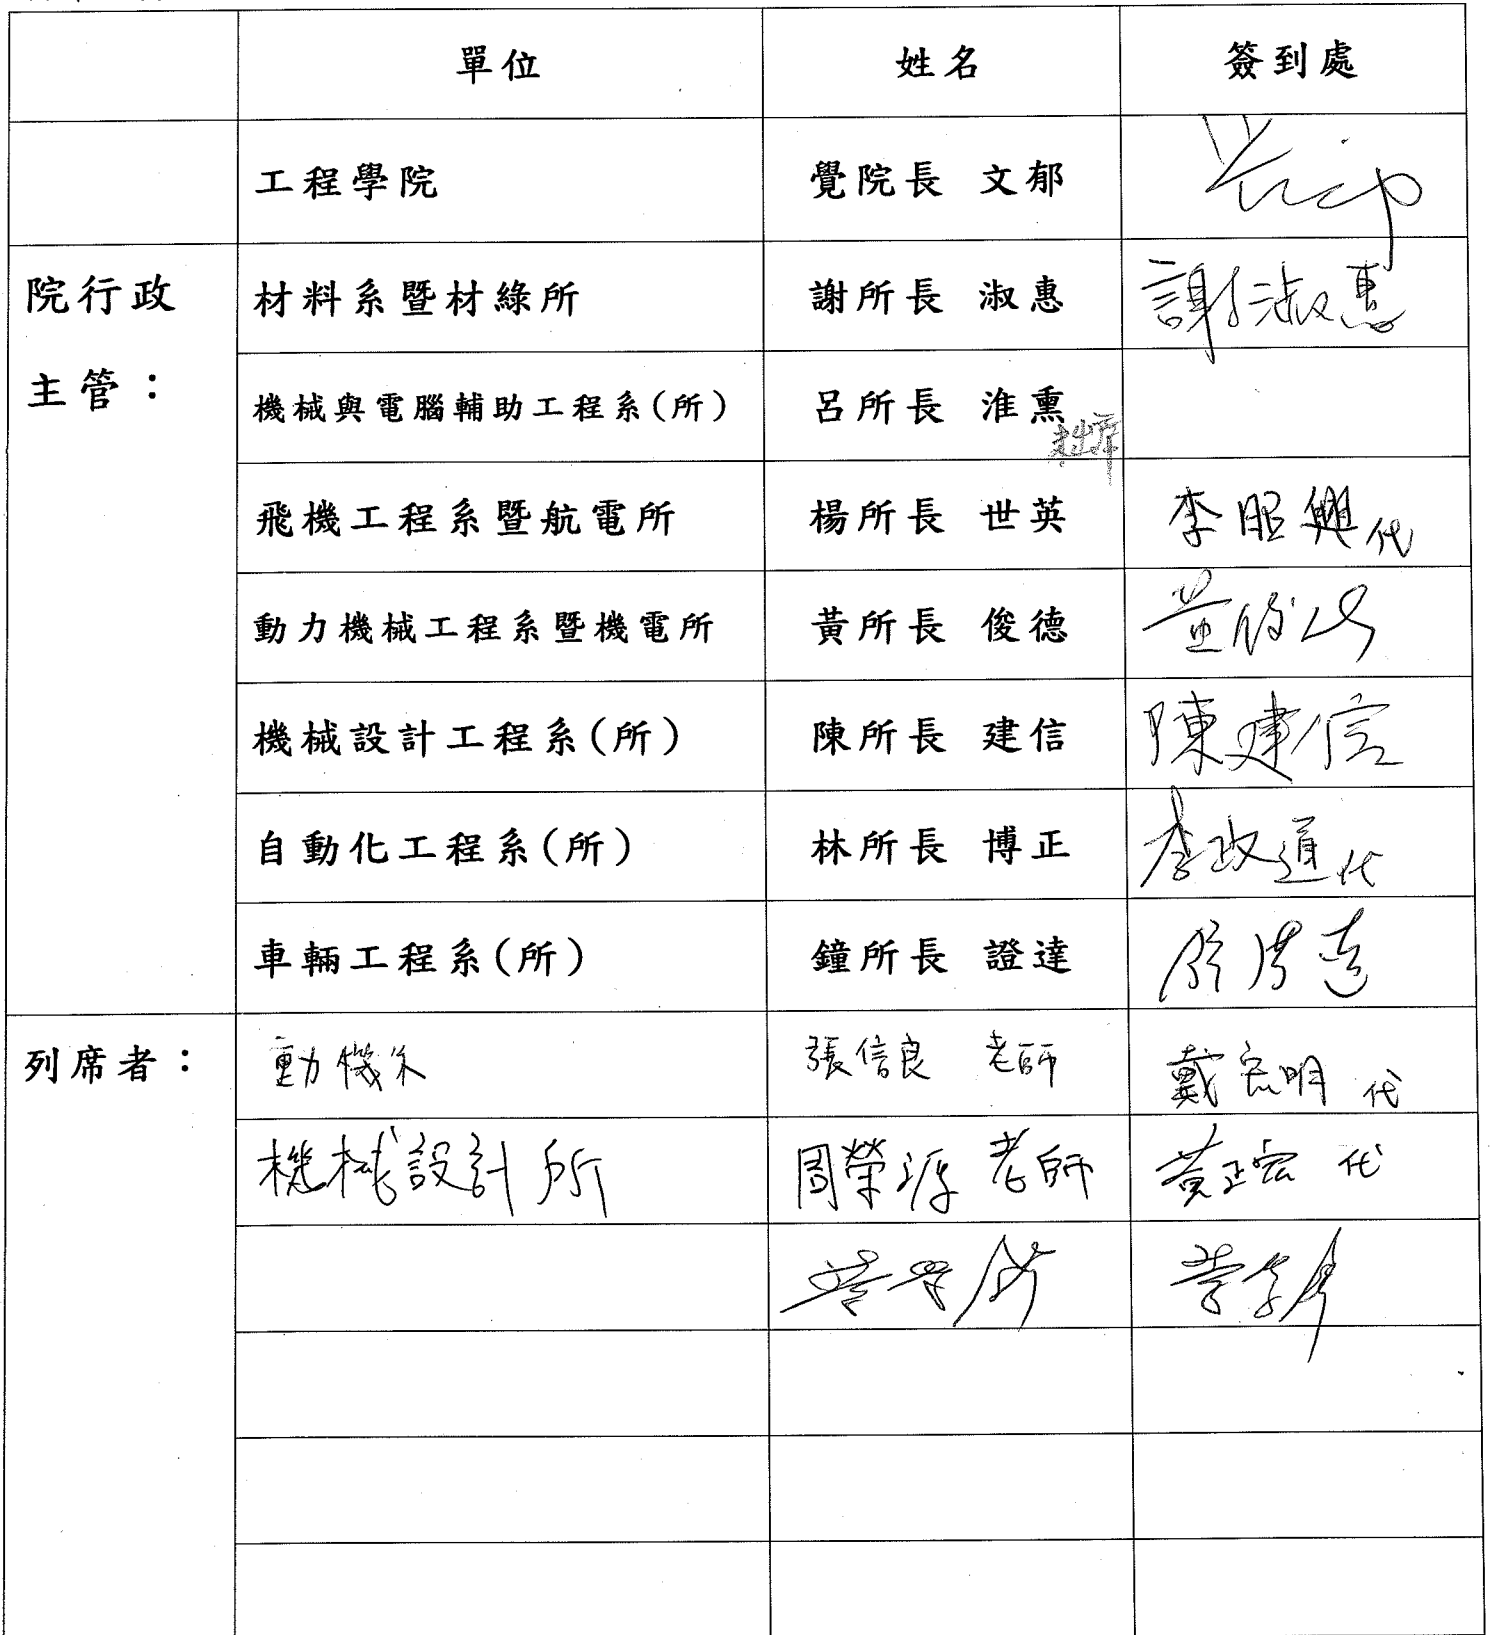 單位 姓名 簽到處
工程學院 覺院長 文郁
院行政
主管：
材料系暨材綠所 謝所長 淑惠 謝淑惠
機械與電腦輔助工程系(所) 呂所長 淮熏
未出席
飛機工程系暨航電所 楊所長 世英 李昭興代
動力機械工程系暨機電所 黃所長 俊德
機械設計工程系(所) 陳所長 建信 陳建信
自動化工程系(所) 林所長 博正 李政道代
車輛工程系(所) 鐘所長 證達
列席者： 動機系 張信良 老師 戴宏明 代
機械設計所 周榮源 老師 黃正宏 代